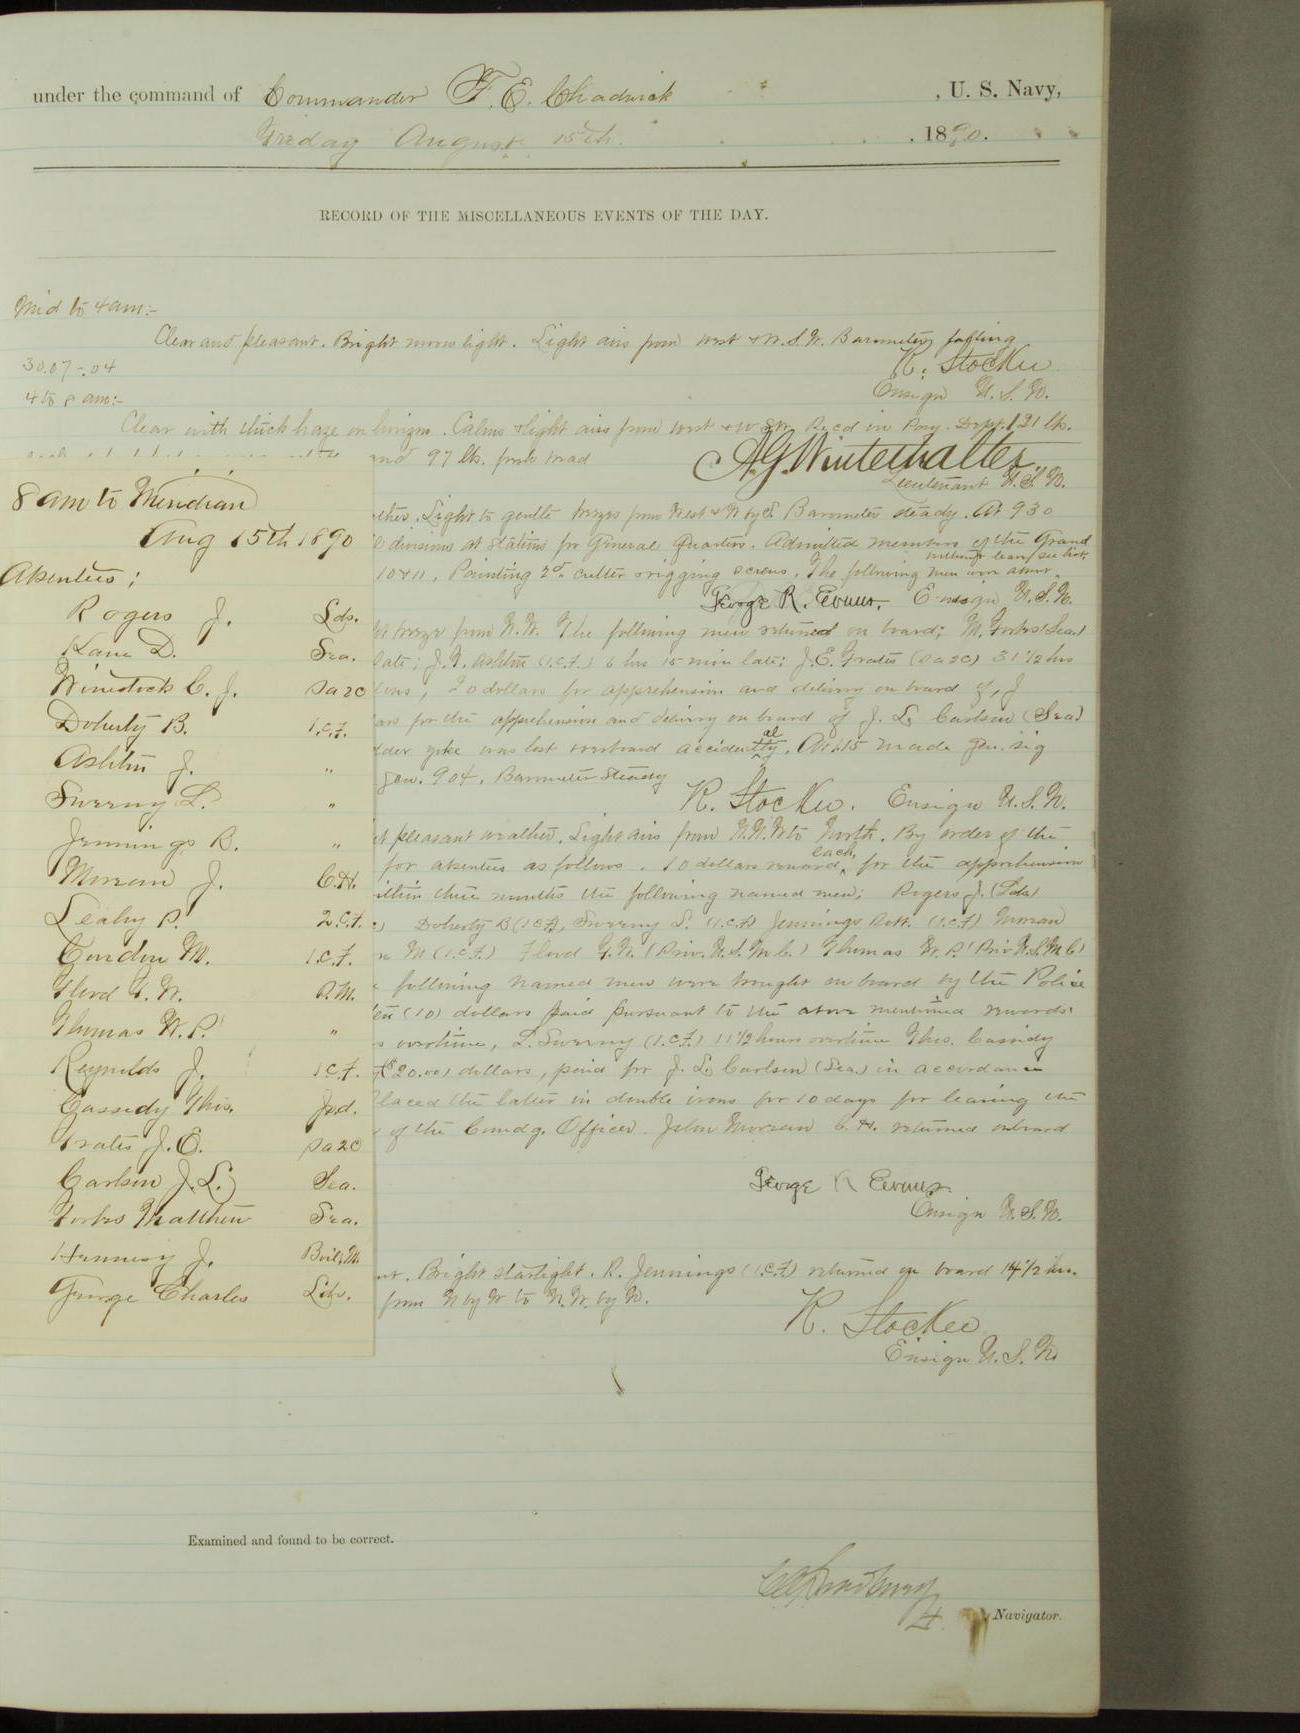 under the command of Commander F. E. Chadwick , U. S. Navy,
Friday August 15th. , 1890.
RECORD OF THE MISCELLANEOUS EVENTS OF THE DAY.
Mid to 4 am:-
Clear and pleasant. Bright moonlight. Light airs from west & W.S.W. Barometer falling
30.07-.04
R. Stocker
Ensign U. S. N.
4 to 8 am:-
Clear with thick haze on horizon. Calms & light airs from west & W S W. Rec'd in Pay. Dept. 121 lbs.
and 97 lbs. fresh bread
A.G. Winterhalter
Lieutenant U.S.N.
8 am to Meridian
Aug 15th 1890
Absentees;
Rogers J. Lds.
Kane D. Sea.
C. J. Sa 2c
Doherty B. 1.C.F.
Ashton J. "
Sweeny L. "
Jennings R. "
Moreau J. C.H.
Leahy P. 2.C.F.
M. 1.C.F.
Floyd G. W. P.M.
Thomas W. P. "
Reynolds J. 1 C.F.
Cassidy Thos.
Grates J. E. Sa 2c
Carlson J. L. Sea.
Forbes Matthew Sea.
Hennesy J. Boil. M.
George Charles Lds.
Light to gentle breezes from West & W by S. Barometer steady. At 9 30
divisions at stations for General Quarters. Admitted members of the Grand
without leave/see list
10 & 11. Painting 2d. cutter & rigging screens. The following men were absent
George R. Evans. Ensign U.S.N.
breeze from N.W. The following men returned on board; M. Forbes (Sea.)
late; J.F. Ashton (1.C.F.) 6 hrs 15 min late; J.E. Grates (Sa 2c) 31 1/2 hrs
20 dollars for apprehension and delivery on board of, J
for the apprehension and delivery on board of J. L. Carlson (Sea.)
yoke was lost overboard accidentally. At 6.15 made gen. sig
gen. 904. Barometer steady
K. Stocker. Ensign U.S.N.
pleasant weather. Light airs from N.N.W to North. By order of the
for absentees as follows. 10 dollars reward each, for the apprehension
within three months the following named men; Rogers J. (Lds)
Doherty B (1.C.F), Sweeny L. (1.C.F) Jennings Robt. (1.C.F) Moreau
M (1.C.F.) Floyd G.W. (Priv. U.S.M.C.) Thomas W.P. (Priv U.S.M.C)
following named men were brought on board by the Police
ten (10) dollars paid pursuant to the above mentioned rewards
overtime, L. Sweeny (1.C.F.) 11 1/2 hours overtime Thos. Cassidy
($20.00) dollars, paid for J. L. Carlson (Sea.) in accordance
placed the latter in double irons for 10 days for leaving the
of the Comdg. Officer. John Moreau C.H. returned onboard
George R Evans
Ensign U.S.N.
Bright starlight. R. Jennings (1.C.F) returned on board 14 1/2 hrs.
from N by W to N.W. by N.
K. Stocker
Ensign U.S.N.
Examined and found to be correct.
Navigator.